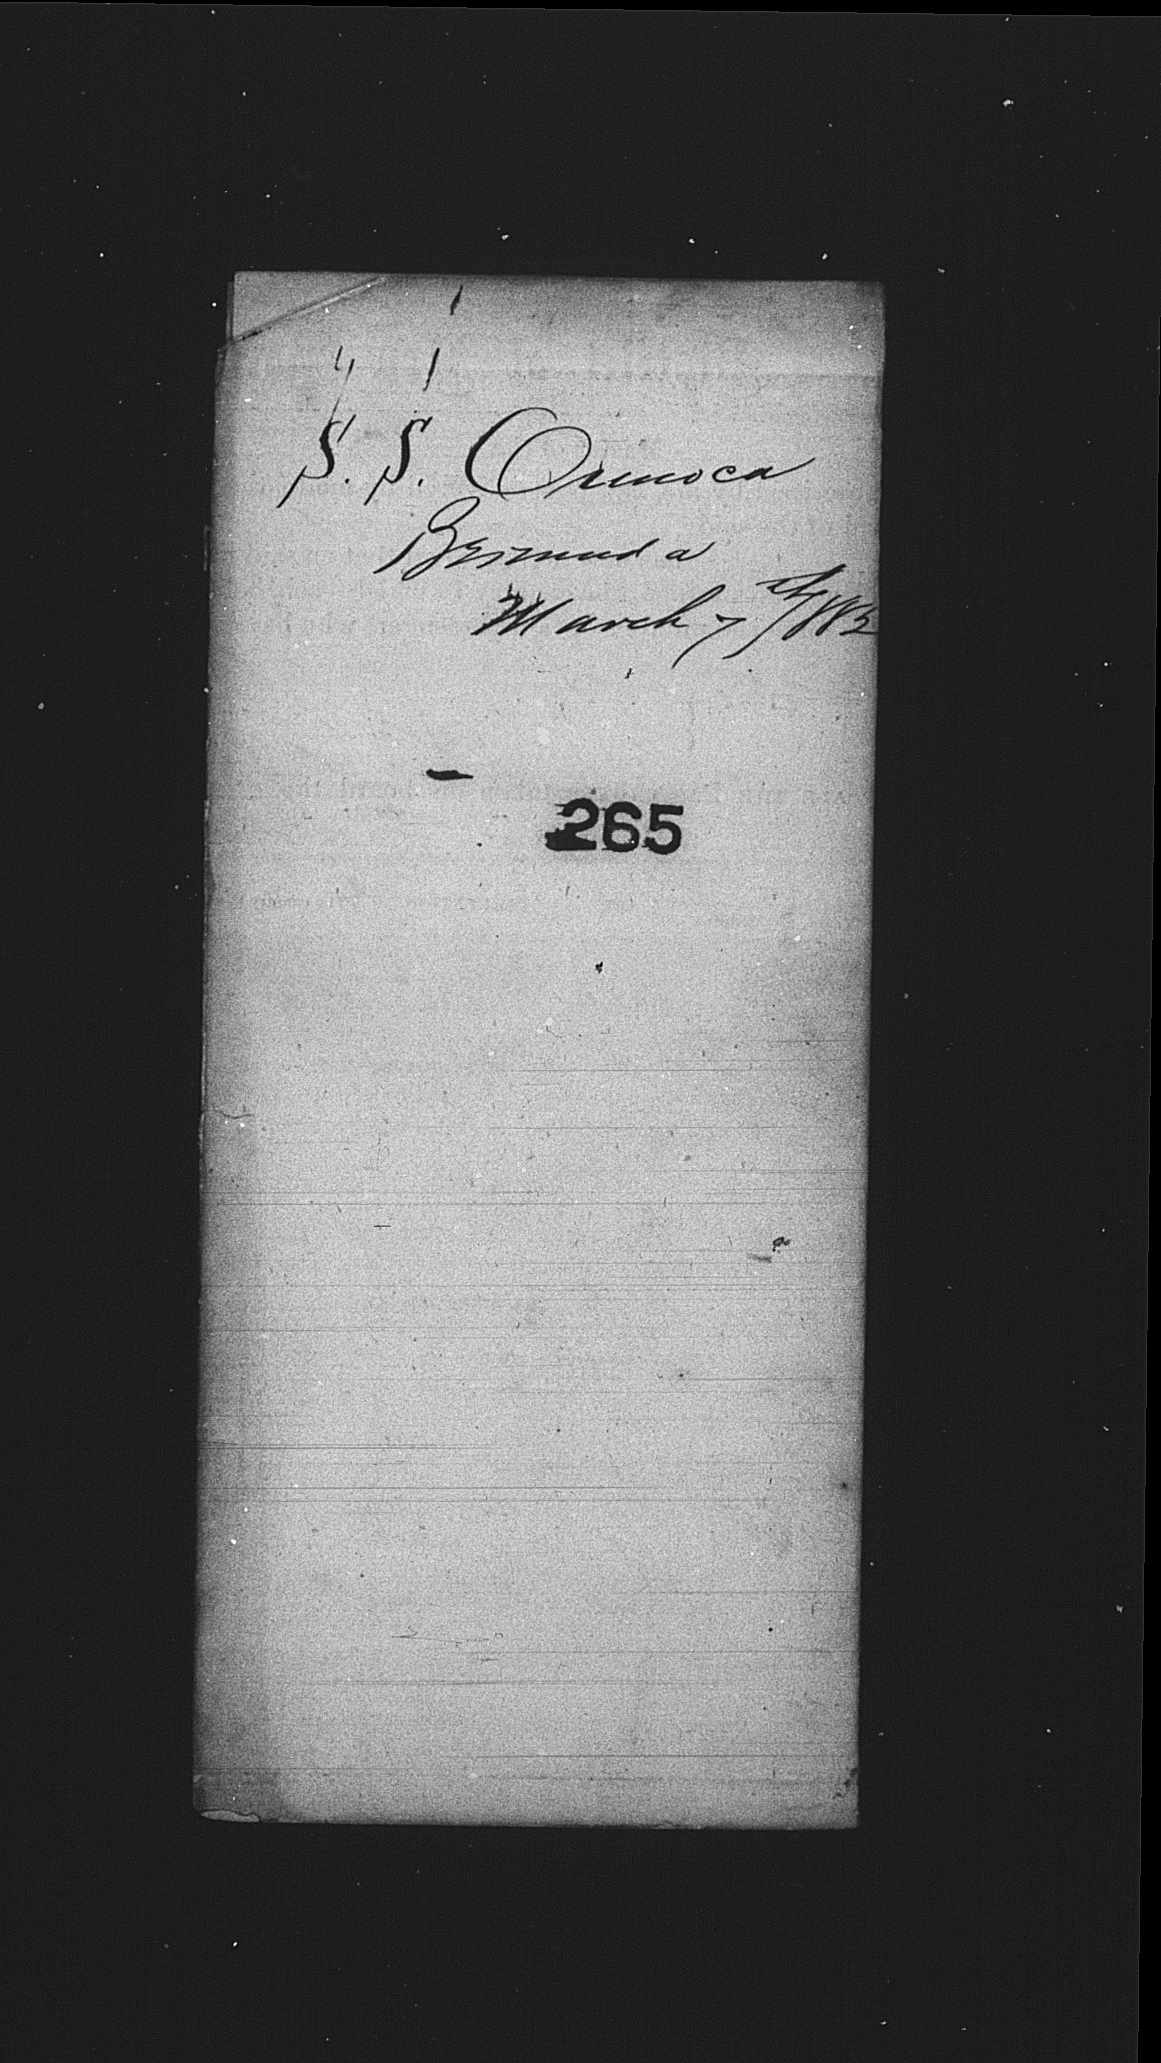 S. S. Orinoca
Bermuda
March 7th/1882
265